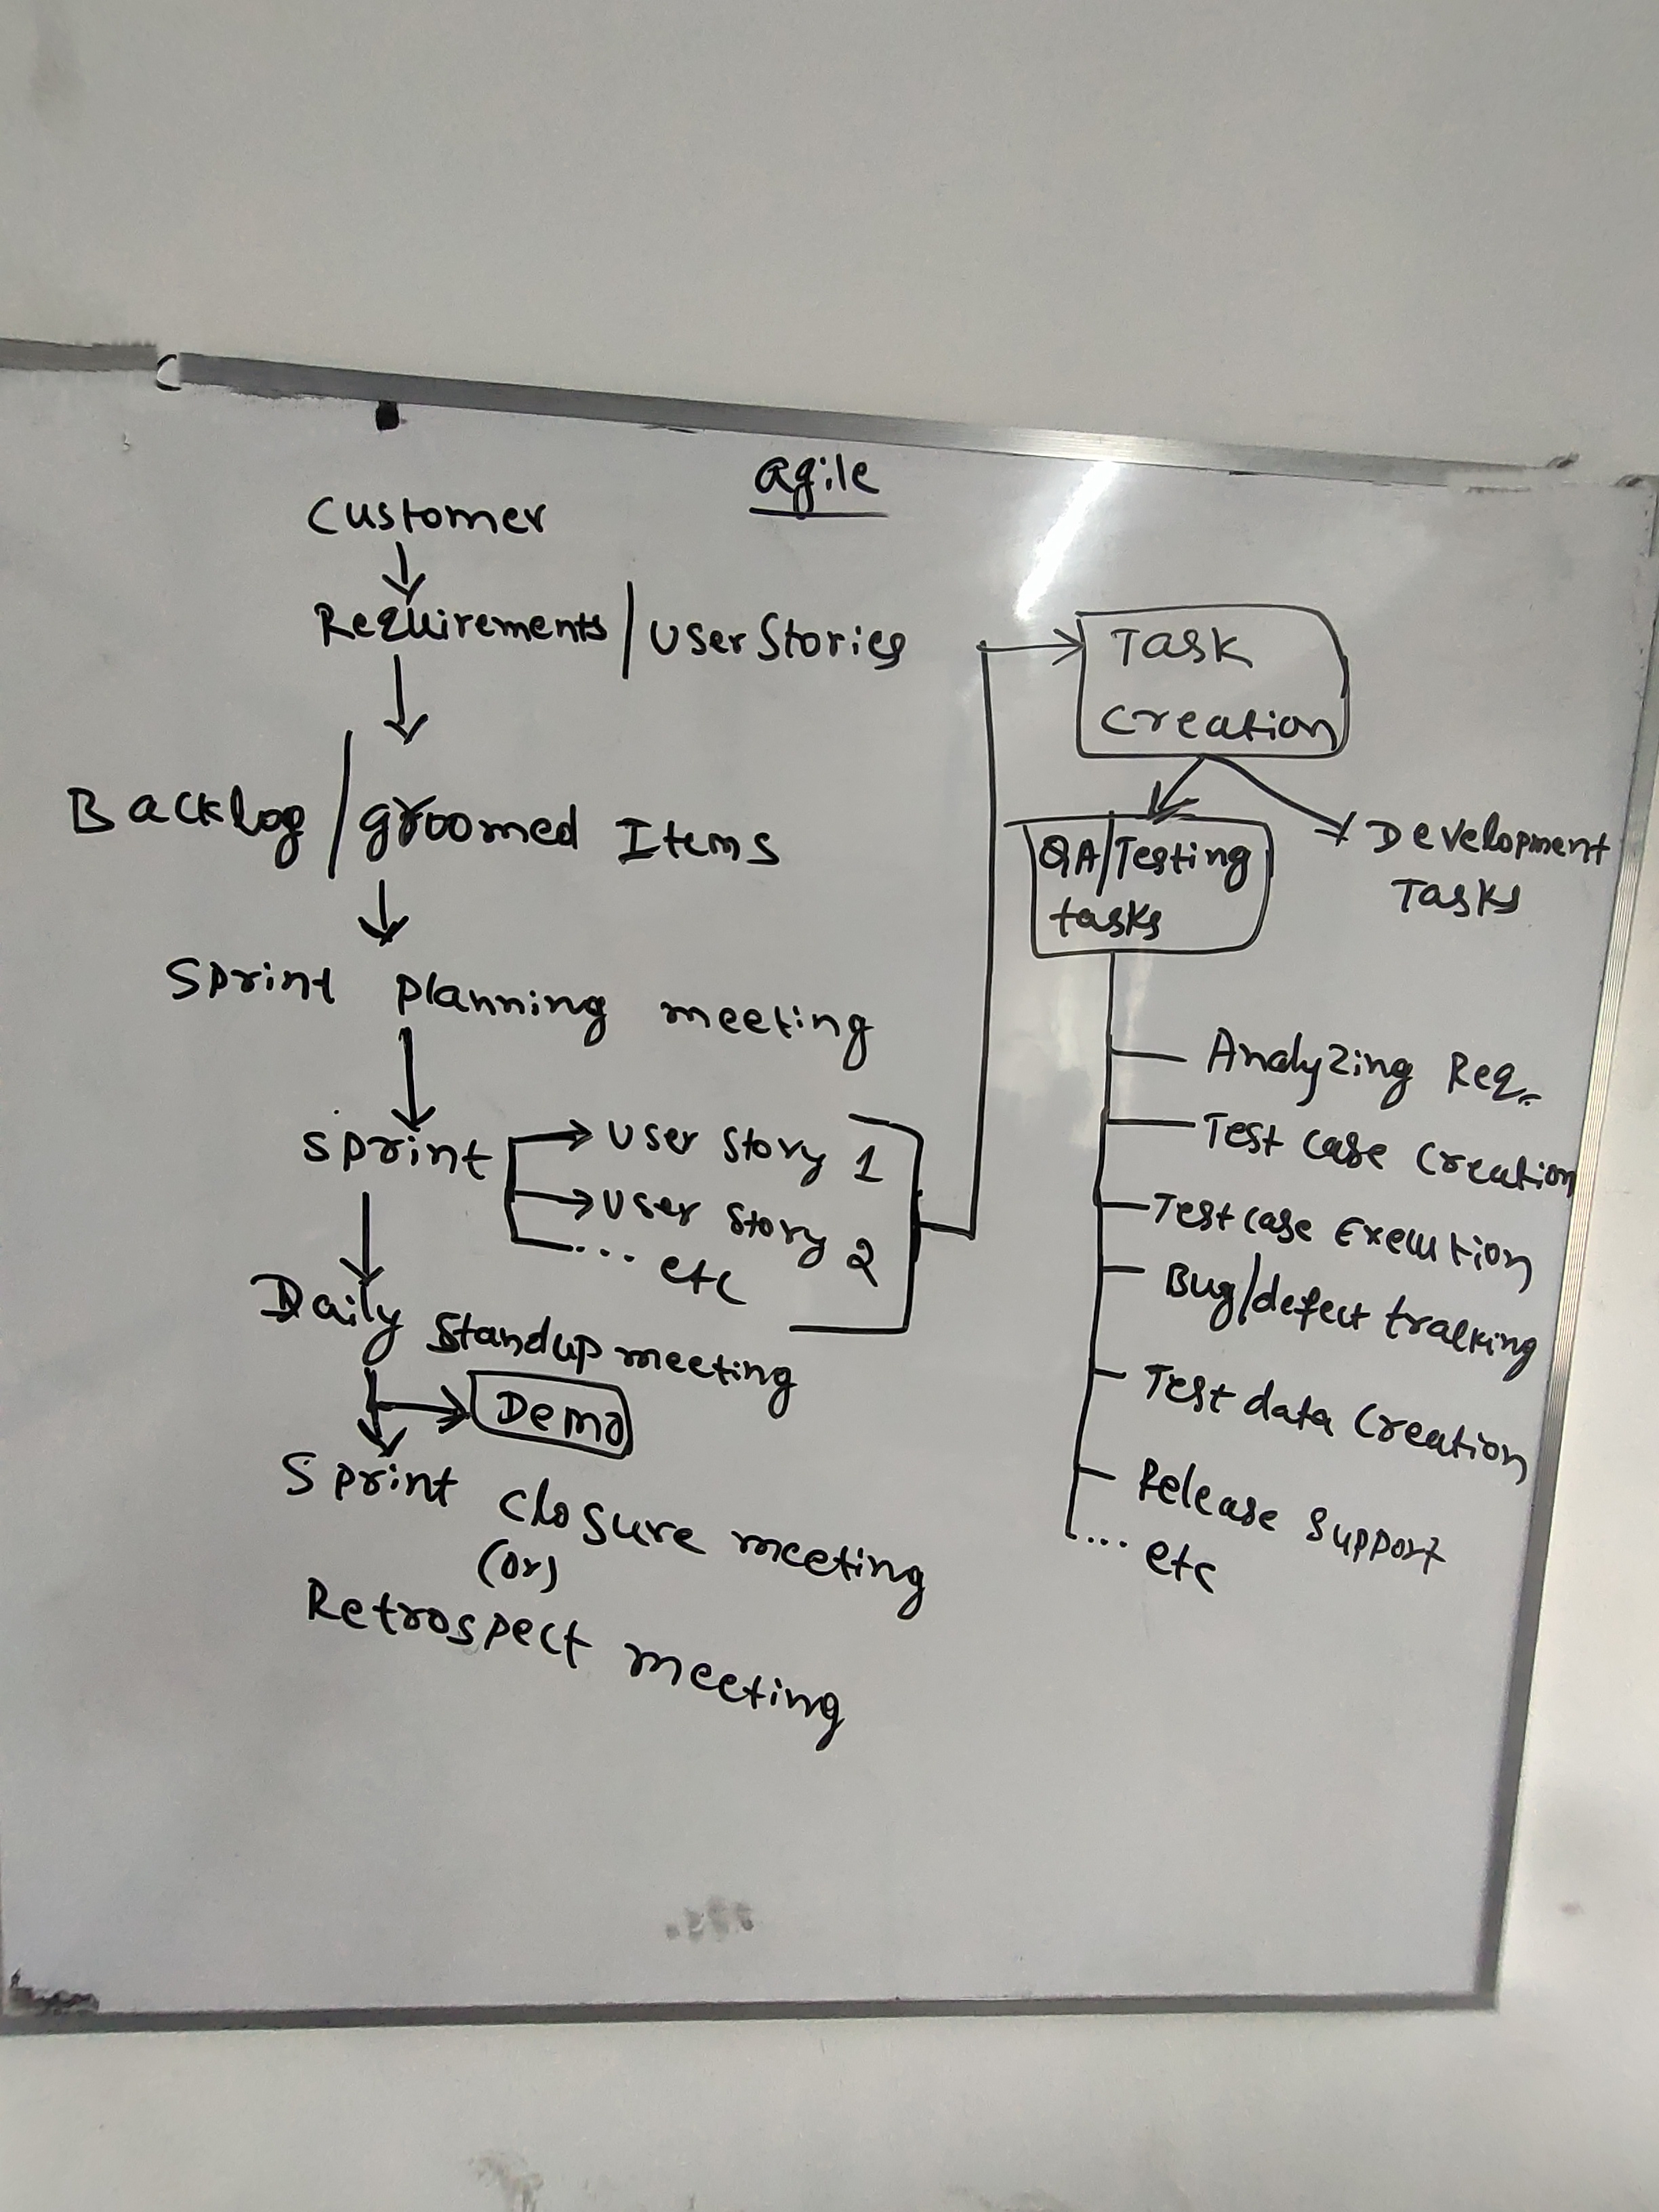 agile
Customer
Requirements / User Stories
Backlog / groomed Items
Sprint planning meeting
Sprint
User Story 1
User Story 2
... etc
Daily Standup meeting
Demo
Sprint closure meeting
(or)
Retrospect meeting
Task
Creation
QA/Testing
tasks
Development
Tasks
Analyzing Req.
Test case Creation
Test case Execution
Bug/defect tracking
Test data Creation
Release Support
... etc